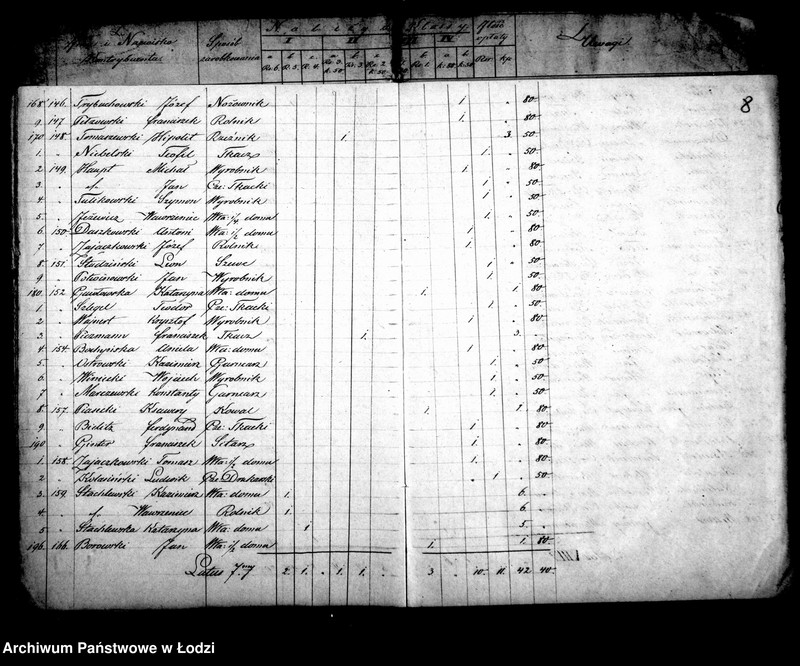 i Nazwiska
Kontrybuenta
Sposób
zarobkowania
Klassy
I II IV
Uwagi
8
168 146. Trybuchowski Józef Nożownik 1 . 80.
9. 147. Franciszek Rolnik 1. . 50.
170 148. Tomaszewski Hipolit Rzeźnik 1. 3. 50
1. . Niebelski Teofil Tkacz 1. . 50.
2. 149. Haupt Michał Wyrobnik 1. . 80.
3. . Jan Cze: Tkacki 1. . 50.
4. . Tulikowski Szymon Wyrobnik 1. . 50.
5. . Jeżewicz Wawrzeniec Wła: 1/4 domu 1. . 50.
6. 150. Daszkowski Antoni Wła: 1/2 domu 1. . 80.
7. . Zajączkowski Józef Rolnik 1. . 80.
8. 151. Studziński Leon Szewc 1. . 50.
9. . Potwinowski Jan Wyrobnik 1. . 50.
180. 152. Katarzyna Wła: domu 1. 1. 80.
1. . Szlegel Teodor Cze: Tkacki 1. . 50.
2. . Wajnert Krysztof Wyrobnik 1. . 80.
3. . Franciszek Tkacz 1. 3. .
4. 154. Aniela Wła: domu 1. . 80.
5. . Ostrowski Kazimierz Garncarz 1. . 50.
6. . Winiecki Wojciech Wyrobnik 1. . 50.
7. . Marczewski Konstanty Garncarz 1. . 50.
8. 157. Piasecki Xawery Kowal 1. 1. 80.
9. . Bielitz Ferdynand Cze: Tkacki 1. . 80.
190. . Ginter Franciszek Sitarz 1. . 80.
1. 158. Zajączkowski Tomasz Wła: 1/2 domu 1. . 80.
2. . Ludwik Cze: Drukarski 1. . 50.
3. 159. Stachlewski Kazimierz Wła: domu 1. 6. .
4. . Wawrzeniec Rolnik 1. 6. .
5. . Stachlewska Katarzyna Wła: domu 1. 5. .
196. 166. Borowski Jan Wła: 1/2 domu 1. 1. 80.
Latus 7my 2. 1. . 1. 1. . 3 . 10. 11. 42 40.
Archiwum Państwowe w Łodzi